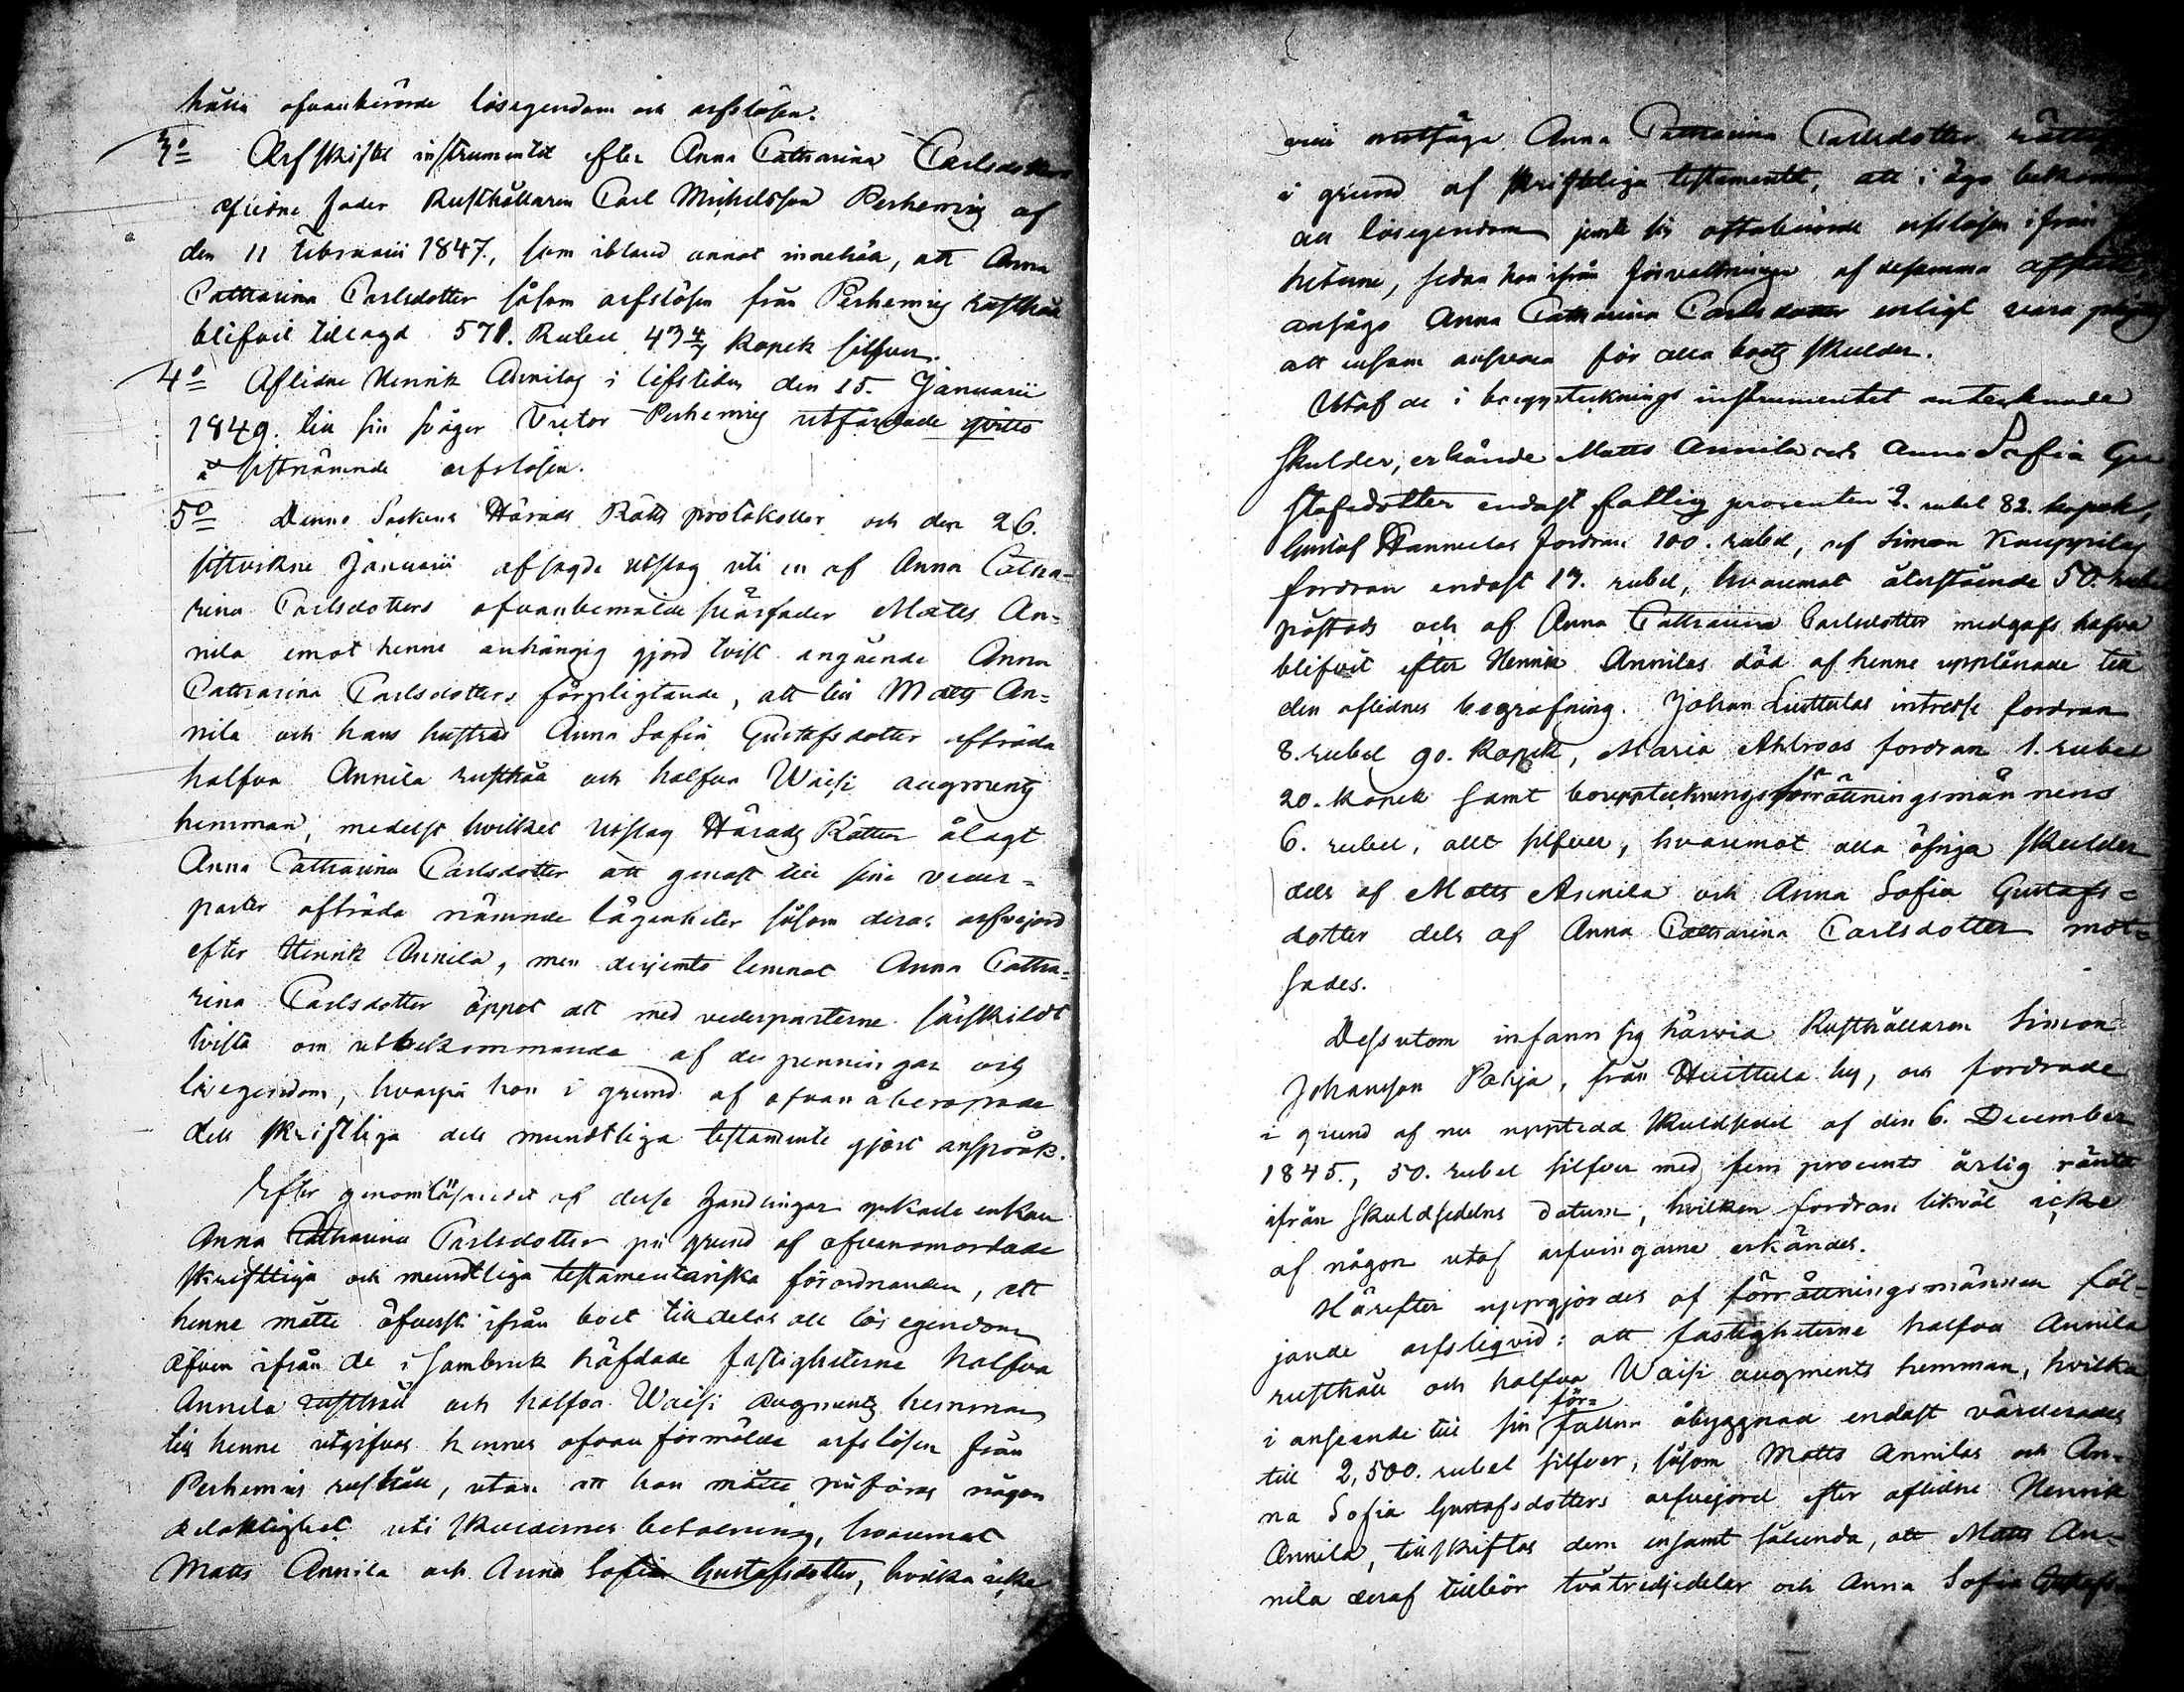 ofvanberörde lösegendom och arfslösen.
3o Arfskiftes instrumentet efter Anna Catharina Carlsdotters
aflidne fader Rusthållaren Carl Michelsson Perhemig af
den 11 Februarii 1847., som ibland annat innehåll, att Anna
Catharina Carlsdotter såsom arfslösen från Perhemig rusthåll
blifvit tillagd 571. Rubel 43 4/7 Kopek silfver.
4o Aflidne Henrik Annilas i lifstiden den 15. Januarii
1849. till sin svåger Victor Perhemig utfärdade qvitto
å sistnämnde arfslösen.
5o Denne Sockens Härads Rätts protokoller och den 26.
sistvikne Januarii afsagde utslag uti en af Anna Catha-
rina Carlsdotters ofvanbemälde svärfader Matts An-
nila emot henne anhängig gjord tvist angående Anna
Catharina Carlsdotters förpligtande, att till Matts An-
nila och hans hustru Anna Sofia Gustafsdotter afträda
halfva Annila rusthåll och halfva Waisi augments
hemman, medelst hvilket utslag Härads Rätten ålagt
Anna Catharina Carlsdotter att genast till sine veder-
parter afträda nämnde lägenheter såsom deras arfvejord
efter Henrik Annila, men derjemte lemnat Anna Catha-
rina Carlsdotter öppet att med vederparterne särskildt
tvista om utbekommande af de penningar och
lösegendom, hvarpå hon i grund af ofvan åberopade
dels skriftliga dels mundtliga testamente gjort anspråk.
Efter genomläsandet af desse handlingar yrkade enkan
Anna Catharina Carlsdotter på grund af ofvanomordade
skriftliga och mundtliga testamentariska förordnanden, att
henne måtte öfverst ifrån boet tilldelas all lös egendom
äfven ifrån de i sambruk häfdade fastigheterne halfva
Annila rusthåll och halfva Waisi augments hemman
till henne utgifvas hennes ofvan förmälde arfslösen från
Perhemis rusthåll, utan att hon måtte påföras någon
delaktighet uti skuldernes betalning, hvaremot
Matts Annila och Anna Sofia Gustafsdotter, hvilka icke
motsäga Anna Catharina Carlsdotter
i grund af skriftliga testamentet, att i ägo bekomma
all lösegendom jemte sin oftaberörde arfslösen ifrån
heterne, sedan hon ifrån förvaltningen af desamma
ansågo Anna Catharina Carlsdotter enligt vara pligtig
att ensam ansvara för alla boets skulder.
Utaf de i bouppteknings instrumentet antecknade
skulder, erkände Matts Annila och Anna Sofia Gu
stafsdotter endast fattig procenten 2. rubel 82. kopek,
Gustaf Hannulas fordran 100. rubel, af Simon Kauppilas
fordran endast 13. rubel, hvaremot återstående 50. rubel
påstods och af Anna Catharina Carlsdotter medgafs hafva
blifvit efter Henrik Annilas död af henne upplånade till
den aflidnes begrafning. Johan Luttulas intresse fordran
8. rubel 90. Kopek, Maria Ahlroos fordran 1. rubel
20. Kopek samt boupptekningsförrättningsmännens
6. rubel, allt silfver, hvaremot alla öfriga skulder
dels af Matts Annila och Anna Sofia Gustafs-
dotter dels af Anna Catharina Carlsdotter mot-
sades.
Dessutom infann sig härvid Rusthållaren Simon
Johansson Pohja, från Huittula by, och fordrade
i grund af nu upptedd skuldsedel af den 6. December
1845., 50. rubel silfver med fem procents årlig ränta
ifrån skuldsedelns datum, hvilken fordran likväl icke
af någon utaf arfvingarne erkändes.
Härefter uppgjordes af förrättningsmännen föl-
jande arfsliqvid: att fastigheterne halfva Annila
rusthåll och halfva Waisi augments hemman, hvilka
i anseende till sin förfallna åbyggnad endast värderades
till 2,500. rubel silfver, såsom Matts Annilas och An-
na Sofia Gustafsdotters arfvejord efter aflidne Henrik
Annila, tillskiftas dem ensamt sålunda, att Matts An-
nila deraf tillhör två tredjedelar och Anna Sofia Gustafs